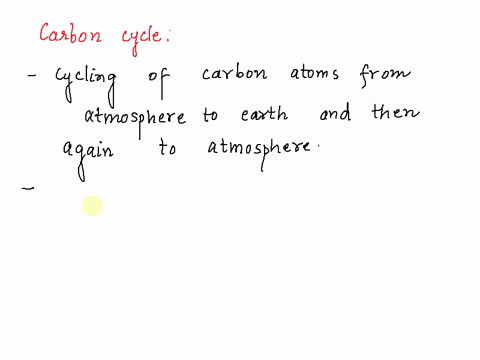 Carbon cycle:
- Cycling of carbon atoms from
atmosphere to earth and then
again to atmosphere.
-